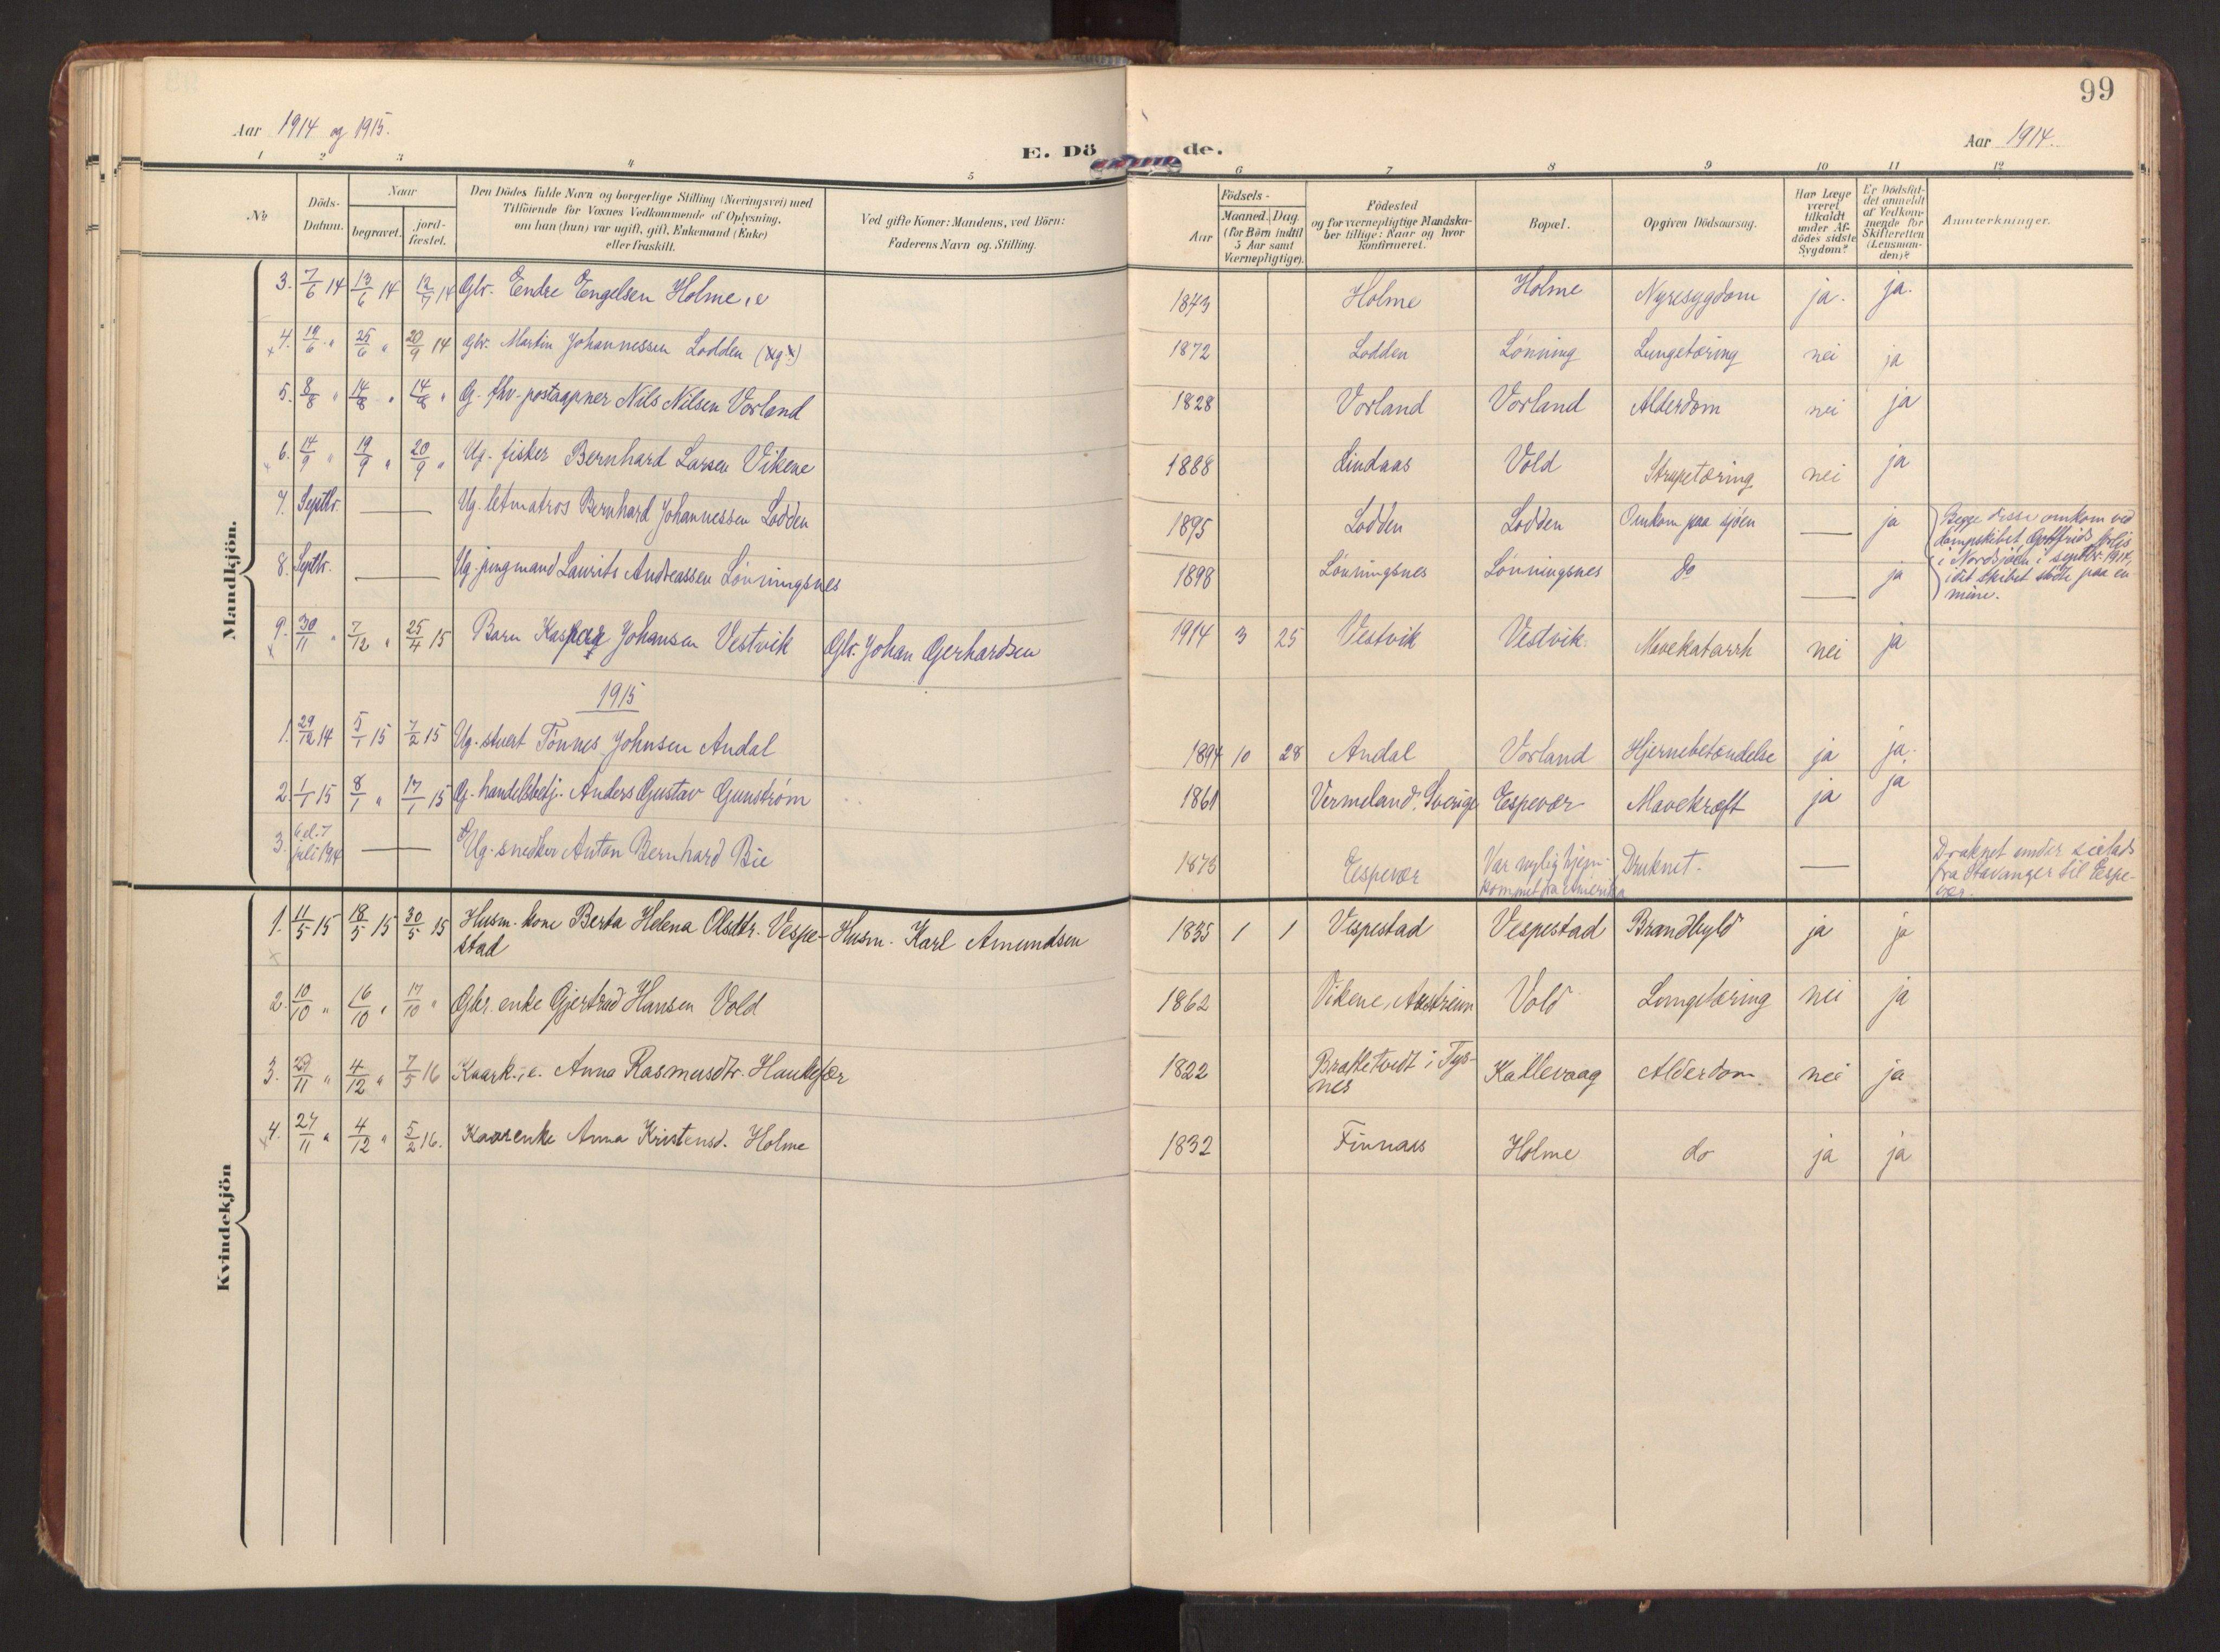 99
Aar 1914 og 1915.
E. Dö de.
Aar 1914.
1 2 3 4 5 6 7 8 9 10 11 12
No
Döds-Datum.
Naar
begravet.
jord-fæstet.
Den Dödes fulde Navn og borgerlige Stilling (Næringsvei) med
Tilföiende for Voxnes Vedkommende af Oplysning,
om han (hun) var ugift, gift, Enkemand (Enke)
eller fraskilt.
Ved gifte Koner: Mandens, ved Börn:
Faderens Navn og Stilling.
Födsels-
Aar
Maaned. Dag.
(for Börn indtil
5 Aar samt
Værnepligtige).
Födested
og for værnepligtige Mandska-
ber tillige: Naar og hvor
konfirmeret.
Bopæl.
Opgiven Dödsaarsag.
Har Læge
været
tilkaldt
under Af-
dödes sidste
Sygdom?
Er Dödsfal-
det anmeldt
af Vedkom-
mende for
Skifteretten
(Lensman-
den)?
Anmærkninger.
Mandkjön.
3. 7/6 14 13/6 14 12/7 14 Gbr. Endre Engelsen Holme, e 1843 Holme Holme Nyresygdom ja. ja.
4. 19/6 " 25/6 " 20/9 14 Gbr. Martin Johannessen Lodden 1872 Lodden Lönning Lungetæring nei ja
5. 8/8 " 14/8 " 14/8 " G. fhv. postaapner Nils Nilsen Vorland 1828 Vorland Vorland Alderdom nei ja
6. 14/9 " 19/9 " 20/9 " Ug. fisker Bernhard Larsen Vikene 1888 Lindaas Vold Strupetæring nei ja
7. Septbr. — Ug. letmatros Bernhard Johannessen Lodden 1895 Lodden Lodden Omkom paa sjöen — ja
8. Septbr. — Ug. jungmand Laurits Andreassen Lönningsnes 1898 Lönningsnes Lönningsnes do — ja
Begge disse omkom ved
dampskibet
i Nordsjöen i septbr. 1914,
idet skibet stödte paa en
mine.
9. 30/11 " 7/12 " 25/4 15 Barn Kaspar Johansen Vestvik Gbr. Johan Gerhardsen 1914 3 25 Vestvik Vestvik Mavekatarrh nei ja
1915
1. 29/12 14 5/1 15 7/2 15 Ug. stuert Tönnes Johnsen Andal 1894 10 28 Andal Vorland Hjernebetændelse ja ja.
2. 1/1 15 8/1 " 17/1 15 G. handelsbetj. Anders Gustav Gunström 1861 Vermeland, Sverige Espevær Mavekræft ja ja
3. 6 el. 7 juli 1914 — Ug. snedker Anton Bernhard Bie 1873 Espevær Var nylig hjem-
kommet fra Amerika Druknet. —
Druknet under seilads
fra Stavanger til Espe-
vær.
Kvindekjön
1. 11/5 15 18/5 15 30/5 15 Husm. kone Berta Helena Olsdtr. Vespe-
stad Husm. Karl Amundsen 1835 1 1 Vespestad Vespestad Brandbyld ja ja
2. 10/10 " 16/10 " 17/10 " Gbr. enke Gjertrud Hansen Vold 1862 Vikene, Austrheim Vold Lungetæring nei ja
3. 29/11 " 4/12 " 7/5 16 Kaark. e. Anna Rasmusdtr. 1822 i Tys-
nes Kallevaag Alderdom nei ja
4. 27/11 " 4/12 " 5/2 16. Kaarenke Anna Kristensd. Holme 1832 Finnaas Holme do ja ja